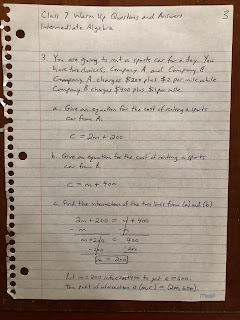 Class 7 Warm Up Questions and Answers
3
Intermediate Algebra
3. You are going to rent a sports car for a day. You
have two choices, Company A and Company B
Company A charges $200 plus $2 per mile while
Company B charges $400 plus $1 per mile.
a. Give an equation for the cost of renting a sports
car from A.
C = 2m + 200
b. Give an equation for the cost of renting a sports
car from B.
C = m + 400
c. Find the intersection of the two lines from (a) and (b)
2m + 200 = m + 400
- m - m
m + 200 = 400
- 200 - 200
m = 200
Put m = 200 into to get C = 600.
The point of intersection is (m, c) = (200, 600).